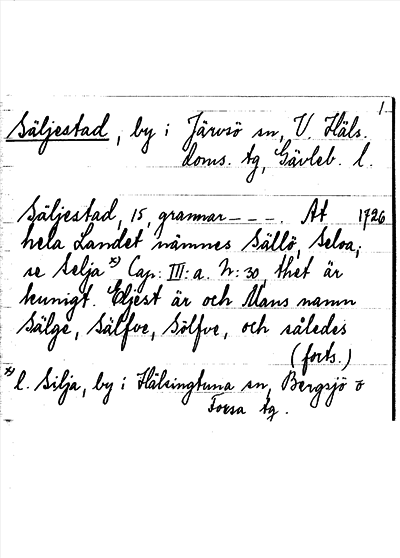 1
Säljestad, by i Järvsö sn, V. Häls.
doms. tg, Gävleb. l.
Säljestad, 15, grannar – – – . At 1726
hela Landet nämnes Sällö, Seloa,
se Selja x) Cap: III: a. N: 30, thet är
kunigt. Eljest är och Mans namn
Sälge, Sälfve, Sölfve, och således
(forts.)
x) l. Silja, by i Hälsingtuna sn, Bergsjö o
Forsa tg.